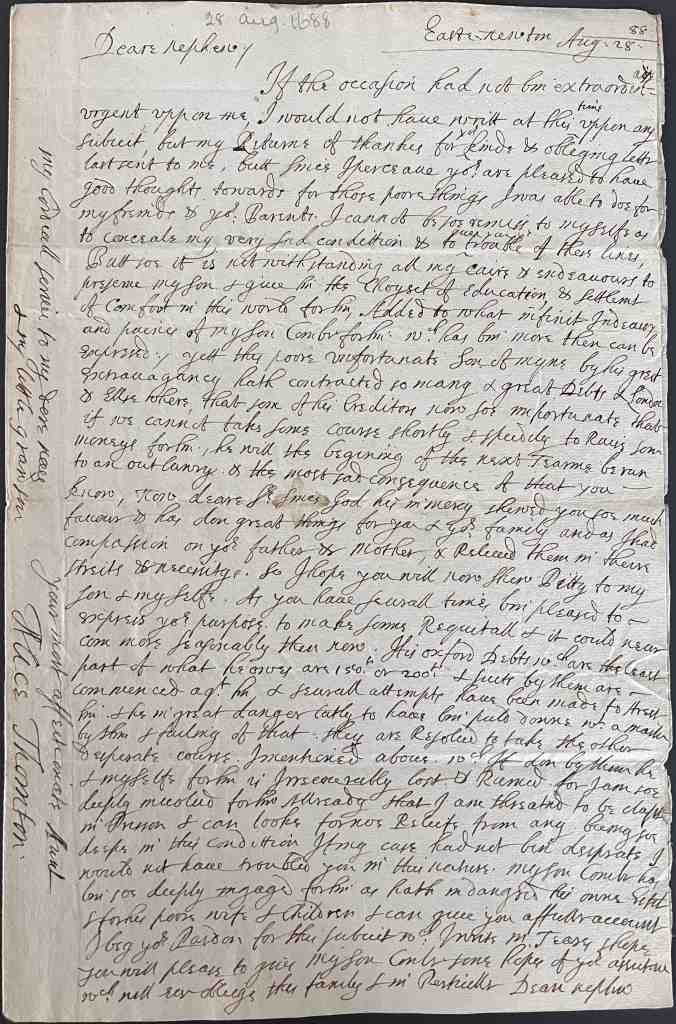 28 aug. 1688
Easte-newton Aug - 28 - 88
Deare nephew
If the occasion had not bin extraordin-ary
urgent uppon me, I would not have writt at this time uppon any
subject, but my Returne of thankes for yor kinde & obleging lettr
last sent to me, butt since I perceave yor. are pleased to have
good thoughts towards for those poore things I was able to doe for
my freinds & yor. Parents. I cannot be soe remiss to myselfe as
to conceale my very sad condittion & to trouble of these lines,
Butt soe it is notwithstanding all my caire & endeavours to
preserve my son & give him the Choysest of Education, & settlemt
of Comfort in this world for him, Added to what infinit Indeavor
and paines of my son Combr for him. wch. has bin more then can be
expressed: yett this poore unfortunate Son of myne by his great
extravagancy hath contracted so many & great Debts & London
& Ellse where, that som of his Creditors now soe importunate that
if we cannot take some course shortly & speedily to Raise som
moneys for him, he will the begining of the next Tearme be run
to an outlawry. & the most sad consequence of that you
know, Now deare Sr. since God his in mercy shewed you soe much
favour & has don great things for you & yor. family and as I had
compassion on yor father & mother, & Releeved them in theire
streits & necesity. So I hope you will now shew Pitty to my
son & my selfe. As you have severall times bin pleased to -
express yor purpose to make some Requitall & it could never
com more seasonably then now. His oxford Debts wch are the least
part of what he owes are 150l. or 200l. & suits by them are -
commenced agt. him & severall attempts have been made to Arest
him. & he in great danger lattly to have bin puld downe
by them & failing of that. they are Resolved to take the other
desperate course I mentioned above. wch. If don by them he
& myselfe for him is Irrecoverally lost & Ruined for I am soe
deeply involved for him Allready that I am threatnd to be clapt
in Prison & can looke for noe Releife from any being soe
deepe in this Condition If my case had not bin desprate I
would not have troubled you in this nature. my son Combr ha
bin soe deeply ingaged for him as hath indangerd his owne Estat
& for his poore wife & Children & can give you a full account
I beg yor Pardon for this subject wch. I write in Teares I hope
you will please to give my son Combr some hopes of yor assistance
wch will ever obleige this family & in Perticuler Deare nephew
your most affectionate Aunt
Alice Thornton.
my Cordiall servis to my deare neece
& my little grandson